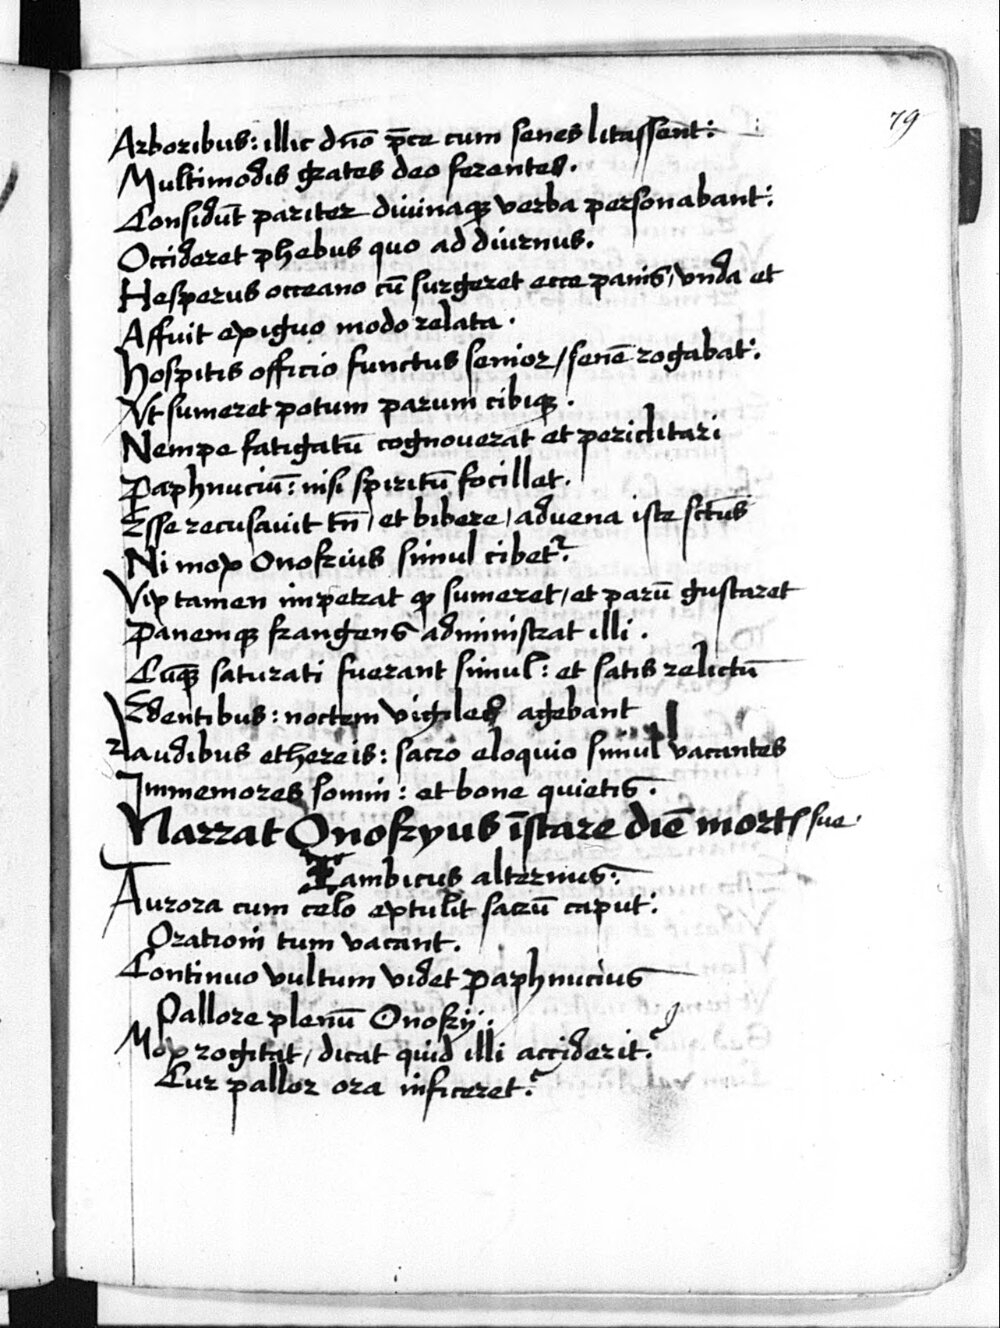 79
Arboribus: illic dn̄o p̄ce cum senes litassent:
Multimodis grates deo ferentes.
Considūt pariter diuinaqꝫ verba personabant:
Occideret phebus quo ad diurnus.
Hesperus occeano cū surgeret ecce panis/ vnda et
Affuit exiguo modo relata.
Hospitis officio functus senior/ senē rogabat:
Vt sumeret potum parum cibiqꝫ.
Nempe fatigatū cognouerat et periclitari
Paphnuciū: nisi spiritū focillet.
Esse recusauit tn̄/ et bibere/ aduena iste sctūs
Ni mox Onofrius simul cibet᷑:
Vix tamen impetrat qꝫ sumeret/ et parū gustaret
Panemqꝫ frangens administrat illi.
Cūqꝫ saturati fuerant simul: et satis relictū
Edentibus: noctem vigiles agebant
Laudibus ethereis: sacro eloquio simul vacantes
Immemores somni: et bone quietis:
Narrat Onofryus īstare diē mortꝭ sue.
Iambicus alternus:
Aurora cum celo extulit sacrū caput:
Orationi tum vacant.
Continuo vultum videt Paphnucius
Pallore plenū Onofrij:
Mox rogitat/ dicat quid illi acciderit?
Cur pallor ora inficeret?